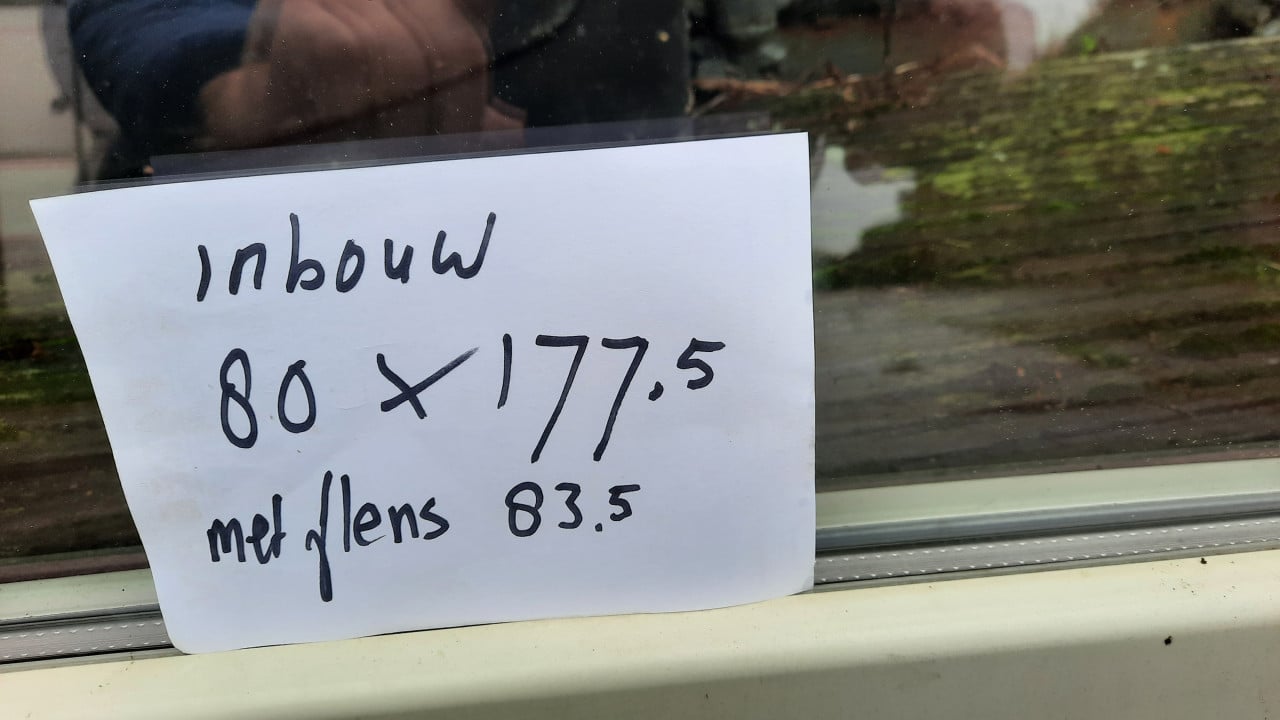 inbouw
80 x 177.5
met flens 83.5